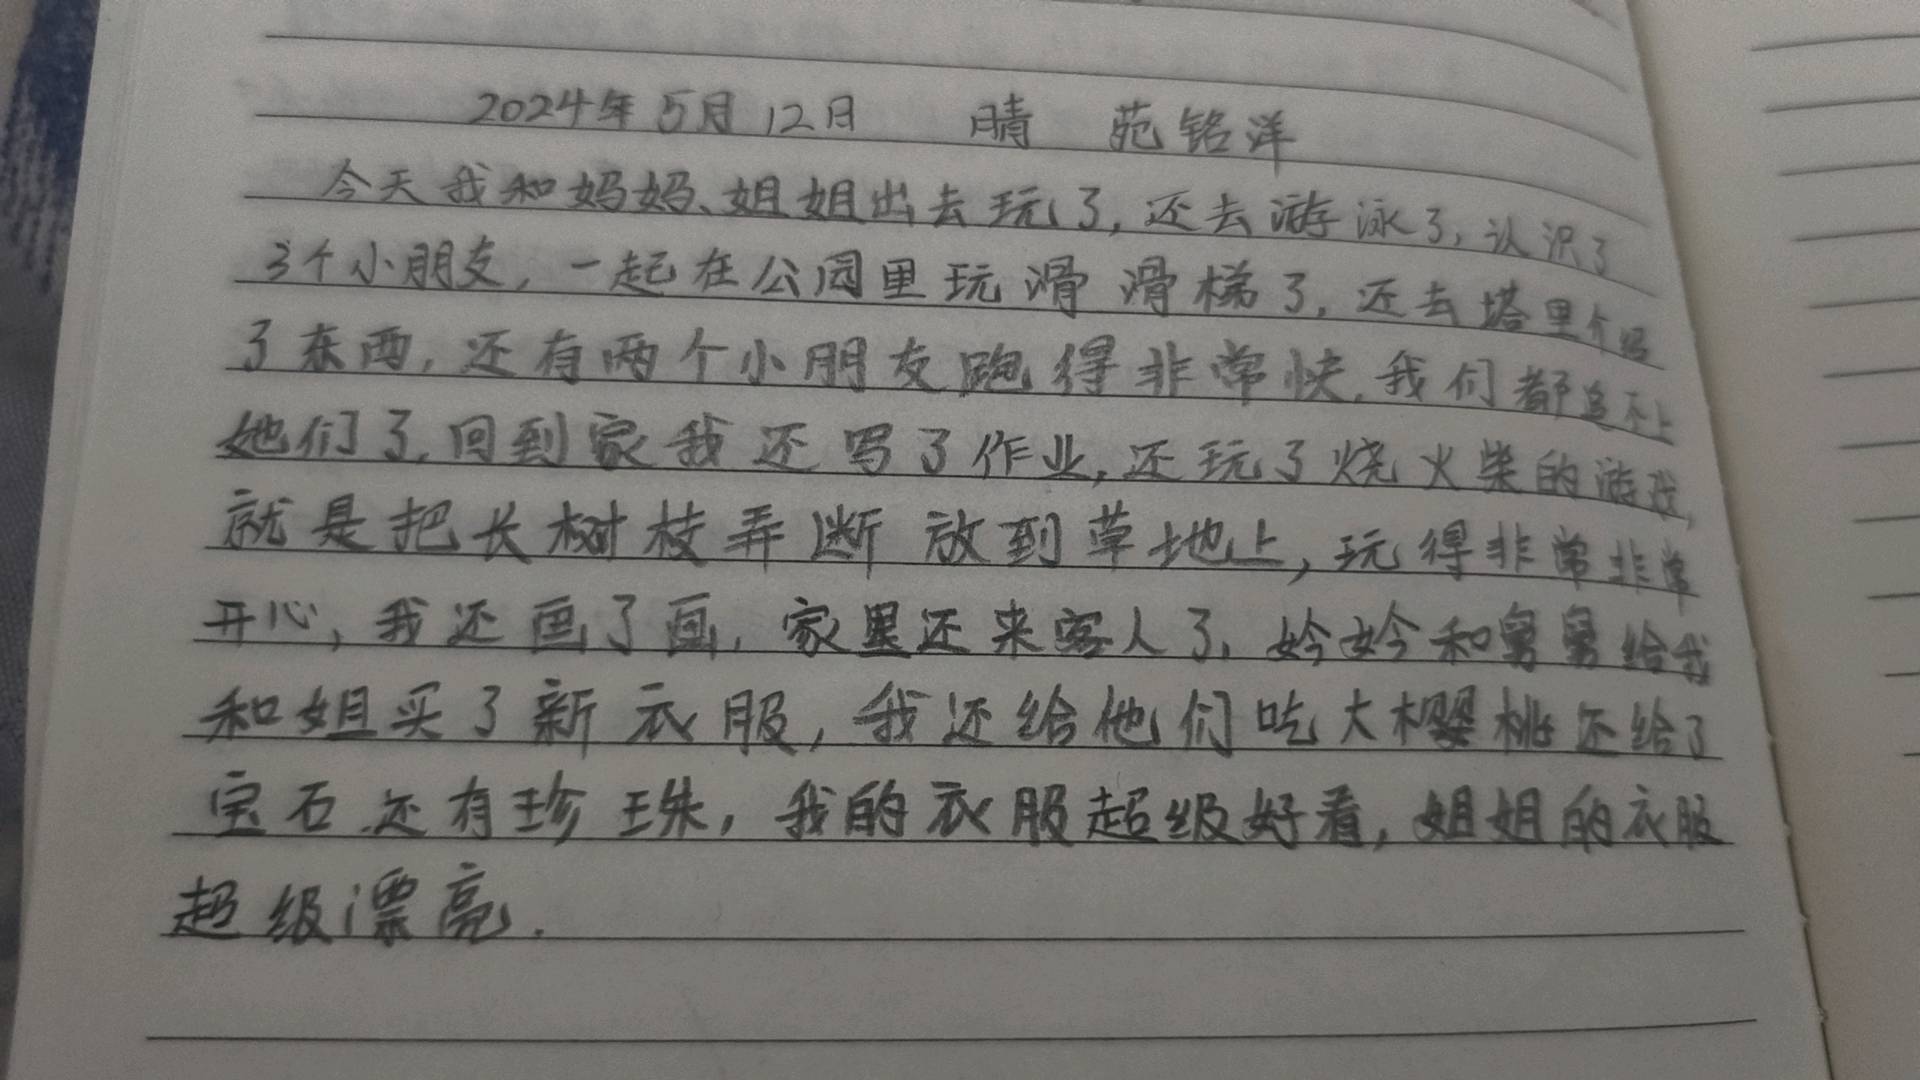 2024年5月12日 晴 苑铭洋
今天我和妈妈、姐姐出去玩了,还去游泳了,认识了
3个小朋友,一起在公园里玩滑滑梯了,还去塔里
了东西,还有两个小朋友跑得非常快,我们都追不上
她们了,回到家我还写了作业,还玩了烧火柴的游戏,
就是把长树枝弄断放到草地上,玩得非常非常
开心,我还画了画,家里还来客人了,妗妗和舅舅给我
和姐买了新衣服,我还给他们吃大樱桃还给了
宝石还有珍珠,我的衣服超级好看,姐姐的衣服
超级漂亮.